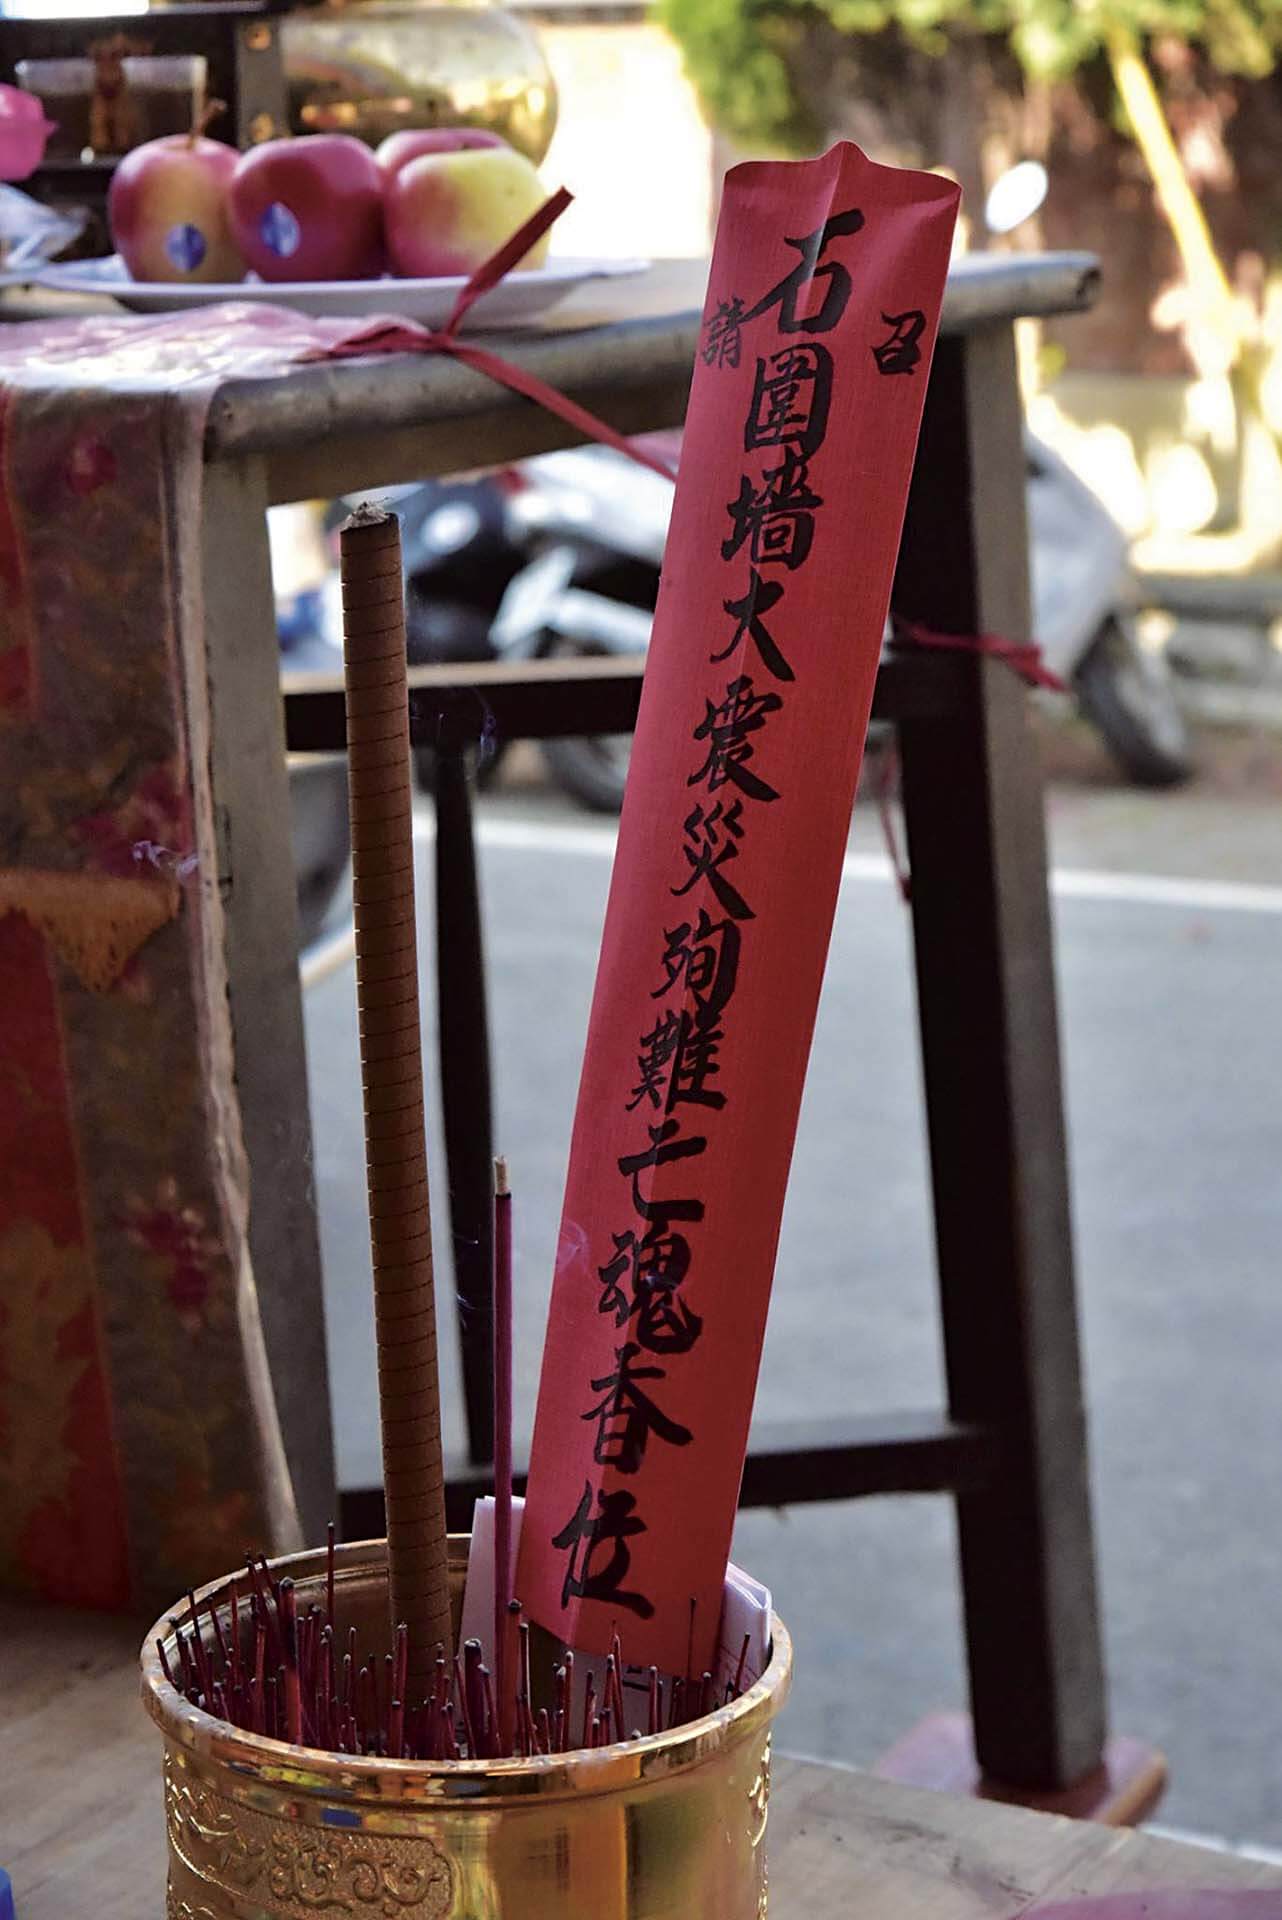 召
石圍墻大震災殉難亡魂香位
請